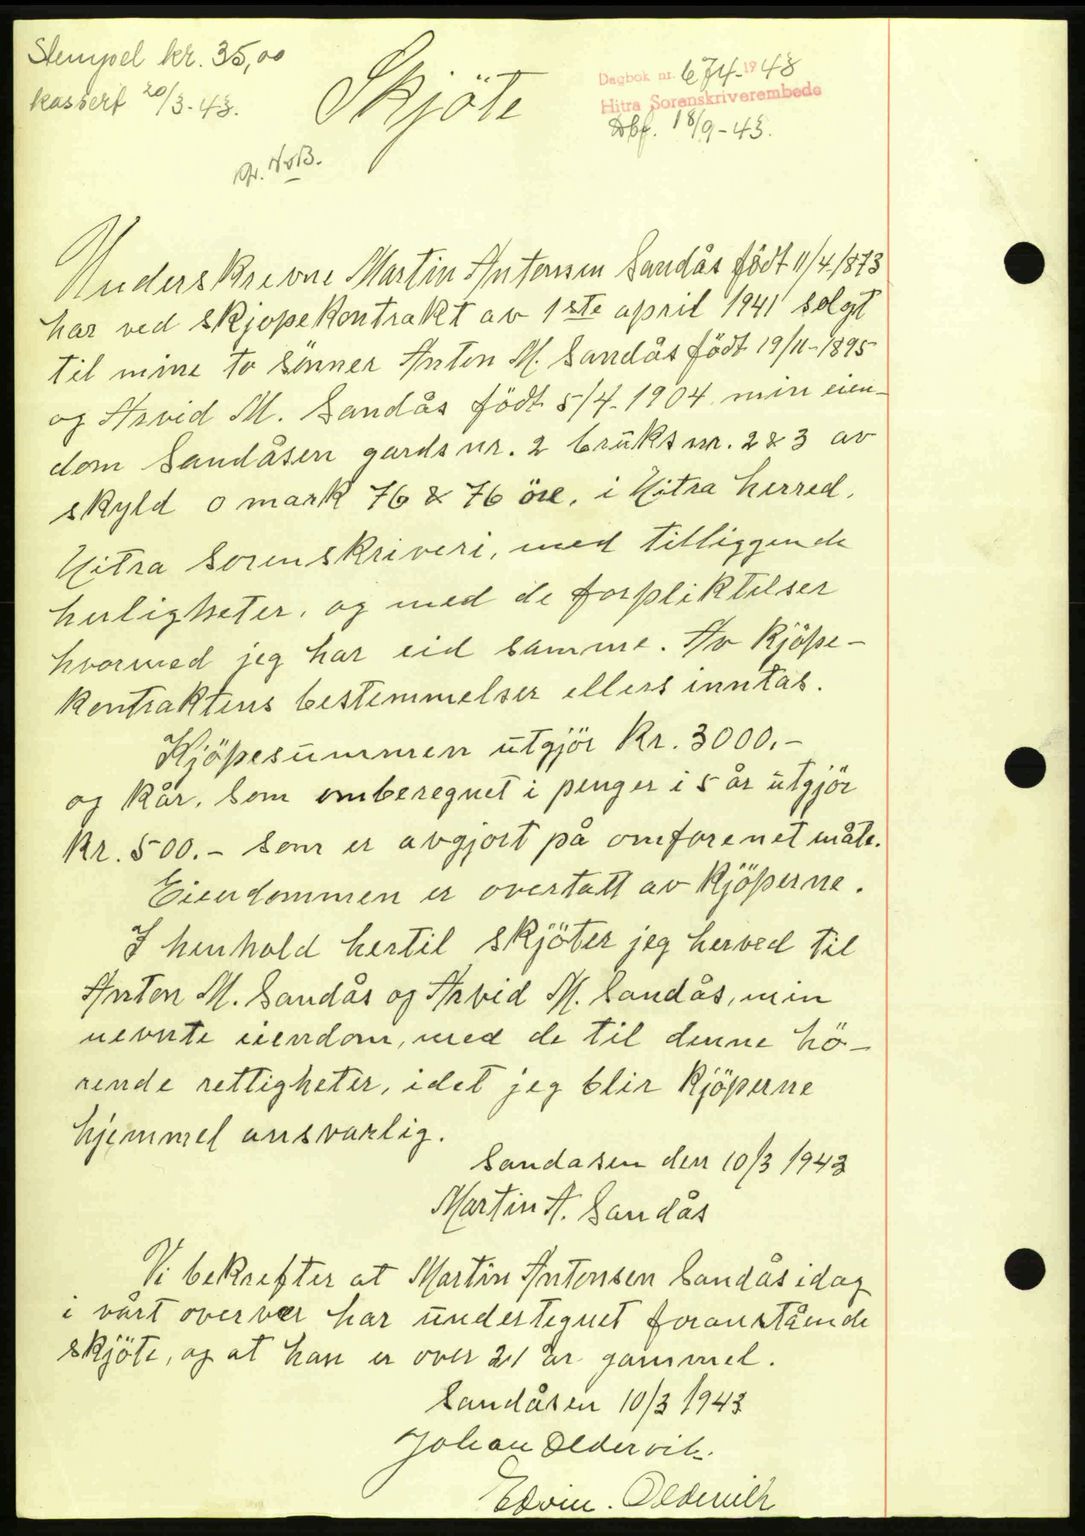 Stempel kr. 35,00
kassert 20/3-43.
Skjöte
Dagbok nr. 674-1943
Hitra Sorenskriverembede
Dbf. 18/9-43.
Underskrevne Martin Antonsen Sandås födt 11/4/873
har ved skjøpekontrakt av 1ste april 1941 solgt
til mine to sönner Anton M. Sandås födt 19/11-1895
og Arvid M. Sandås födt 5/4-1904 min eien-
dom Sandåsen gardsnr. 2 bruksnr. 2 & 3 av
skyld 0 mark 76 & 76 öre, i Hitra herred,
Hitra Sorenskriveri, med tilliggende
herligheter, og med de forpliktelser
hvormed jeg har eid samme. Av kjöpe-
kontraktens bestemmelser ellers inntas.
Kjöpesummen utgjör Kr. 3000,-
og kår, som omberegnet i penger i 5 år utgjör
kr. 500.- som er avgjort på omforenet måte.
Eiendommen er overtatt av kjöperne.
I henhold hertil skjöter jeg herved til
Anton M. Sandås og Arvid M. Sandås, min
nevnte eiendom, med de til denne hö-
rende rettigheter, idet jeg blir kjöperne
hjemmel ansvarlig.
Sandasen den 10/3 1943
Martin A. Sandås
Vi bekrefter at Martin Antonsen Sandås idag
i vårt overvær har undertegnet foranstående
skjöte, og at han er over 21 år gammel.
Sandåsen 10/3 1943
Johan Oldervik.
Edvin. Oldervik